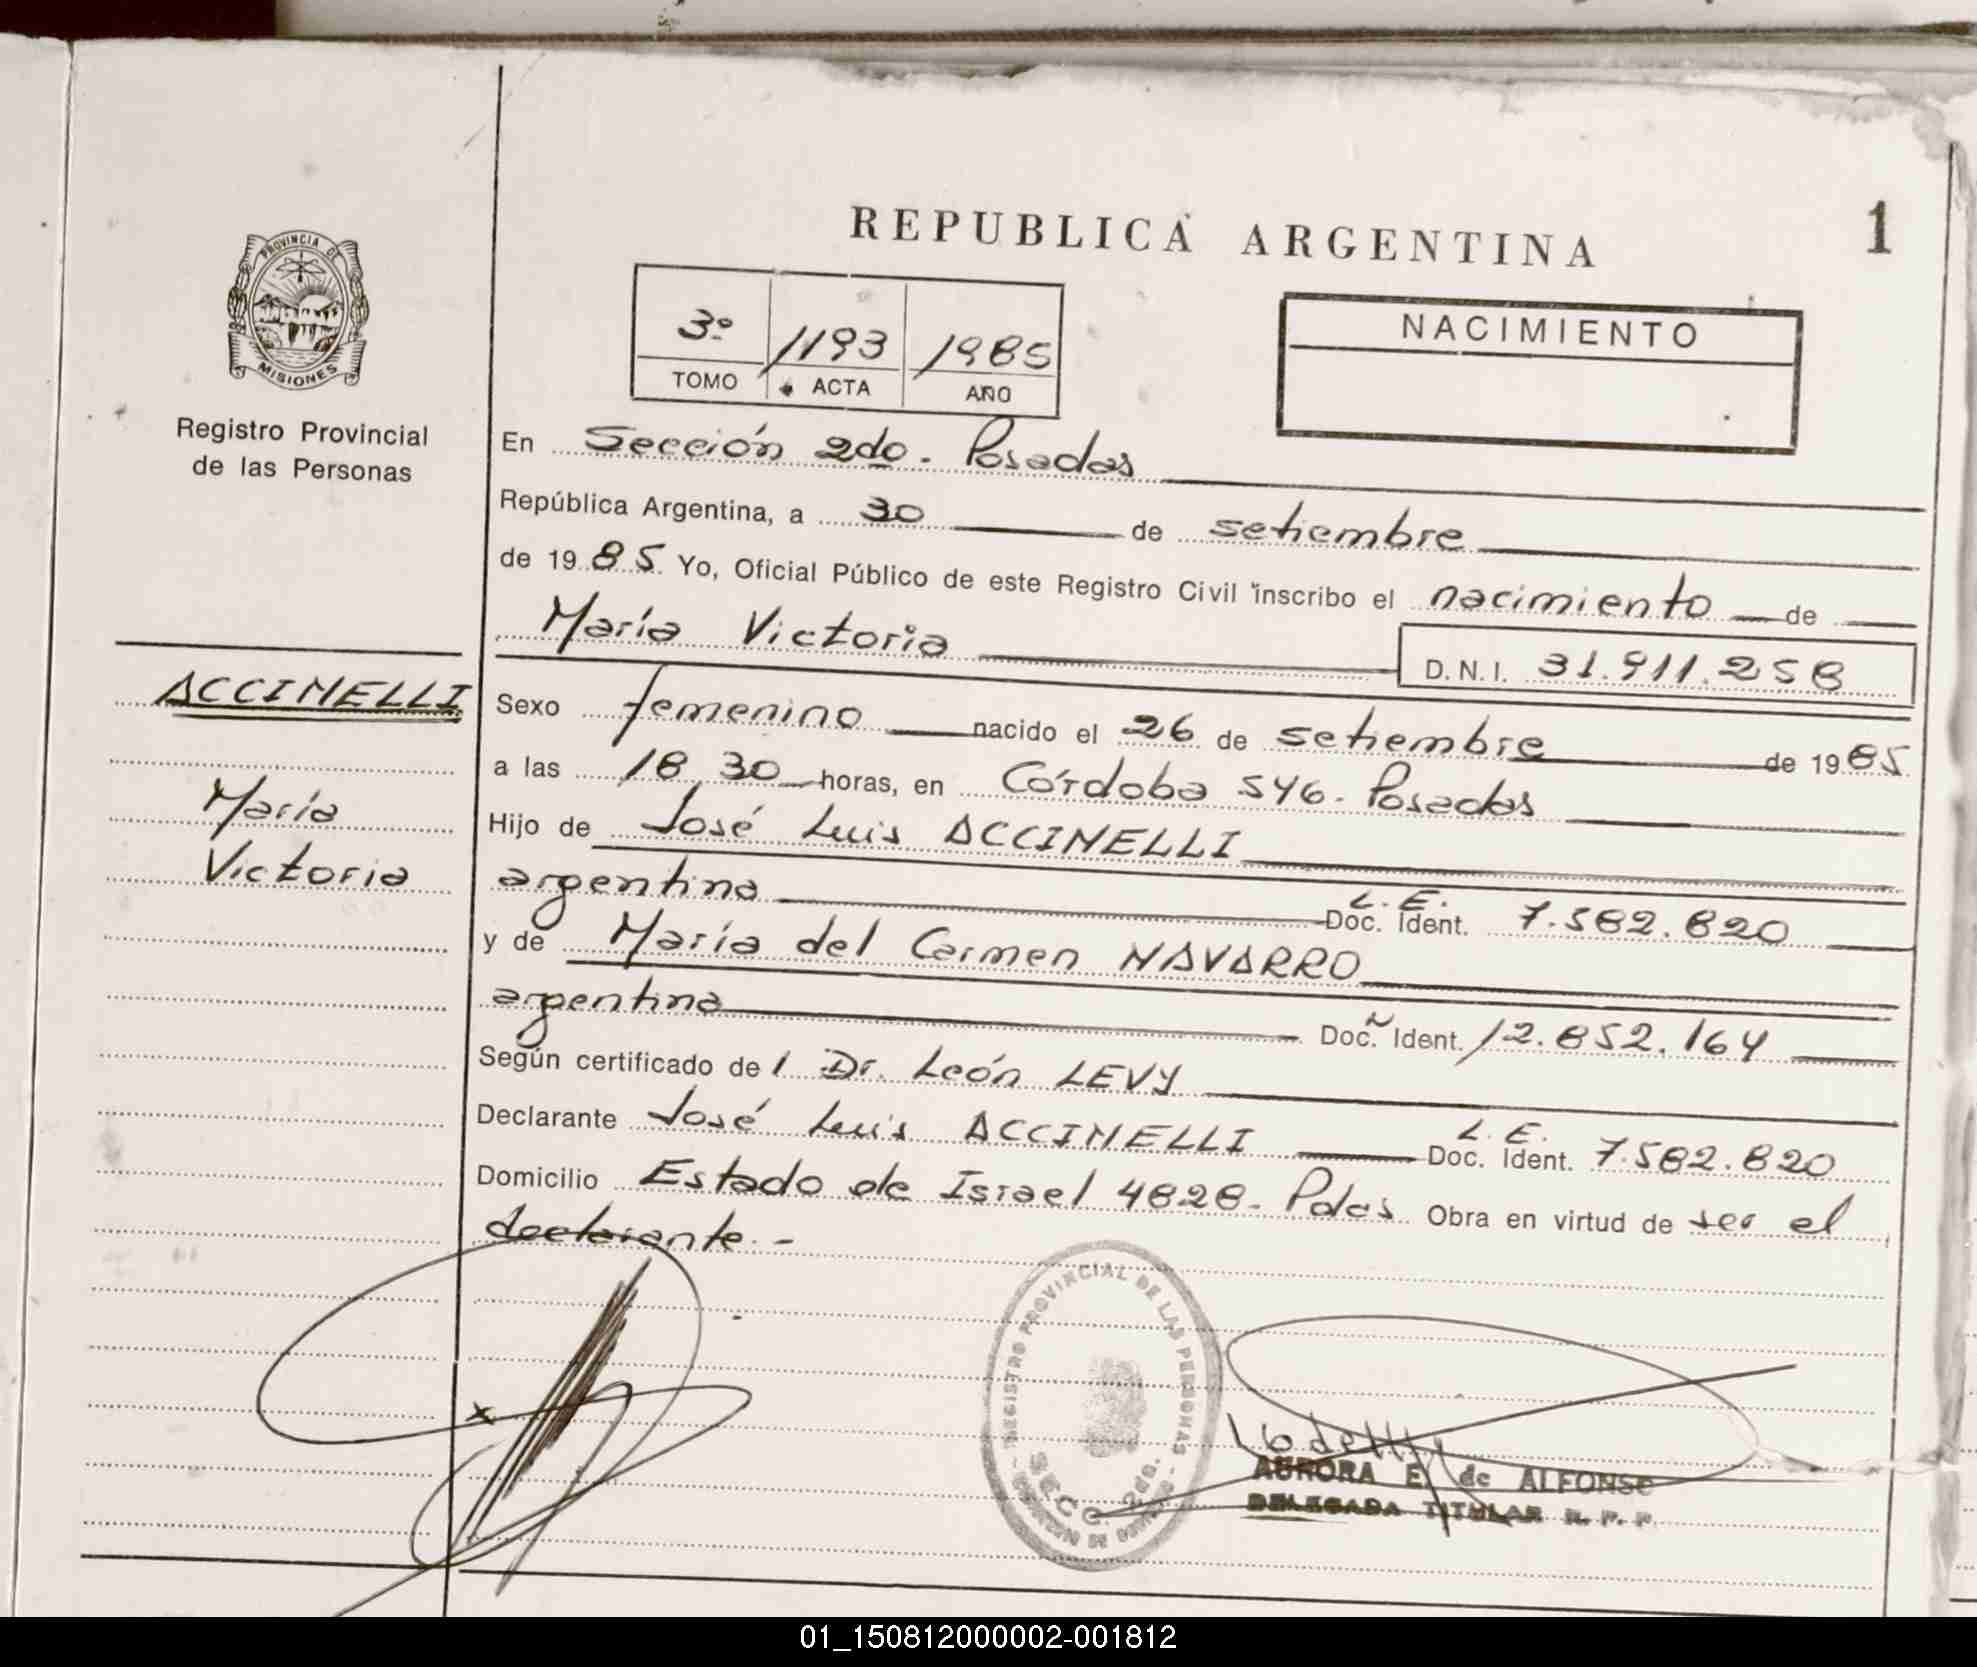 REPUBLICA ARGENTINA
1
PROVINCIA DE
MISIONES
Registro Provincial
de las Personas
3º 1193 1985
TOMO ACTA AÑO
NACIMIENTO
En Sección 2do. Posadas
República Argentina, a 30 de setiembre
de 1985 Yo, Oficial Público de este Registro Civil inscribo el nacimiento de
María Victoria
D.N.I. 31.911.258
ACCINELLI
María
Victoria
Sexo femenino nacido el 26 de setiembre de 1985
a las 18,30 horas, en Córdoba 546. Posadas
Hijo de José Luis ACCINELLI
argentina L.E. Doc. Ident. 7.582.820
y de María del Carmen NAVARRO
argentina Doc. Ident. 12.852.164
Según certificado de l Dr. León LEVY
Declarante José Luis ACCINELLI L.E. Doc. Ident. 7.582.820
Domicilio Estado de Israel 4828- Pdas Obra en virtud de ser el
declarante.-
x
REGISTRO PROVINCIAL DE LAS PERSONAS
SECC. 2da.
AURORA E. de ALFONSO
DELEGADA TITULAR R. P. P.
01_150812000002-001812